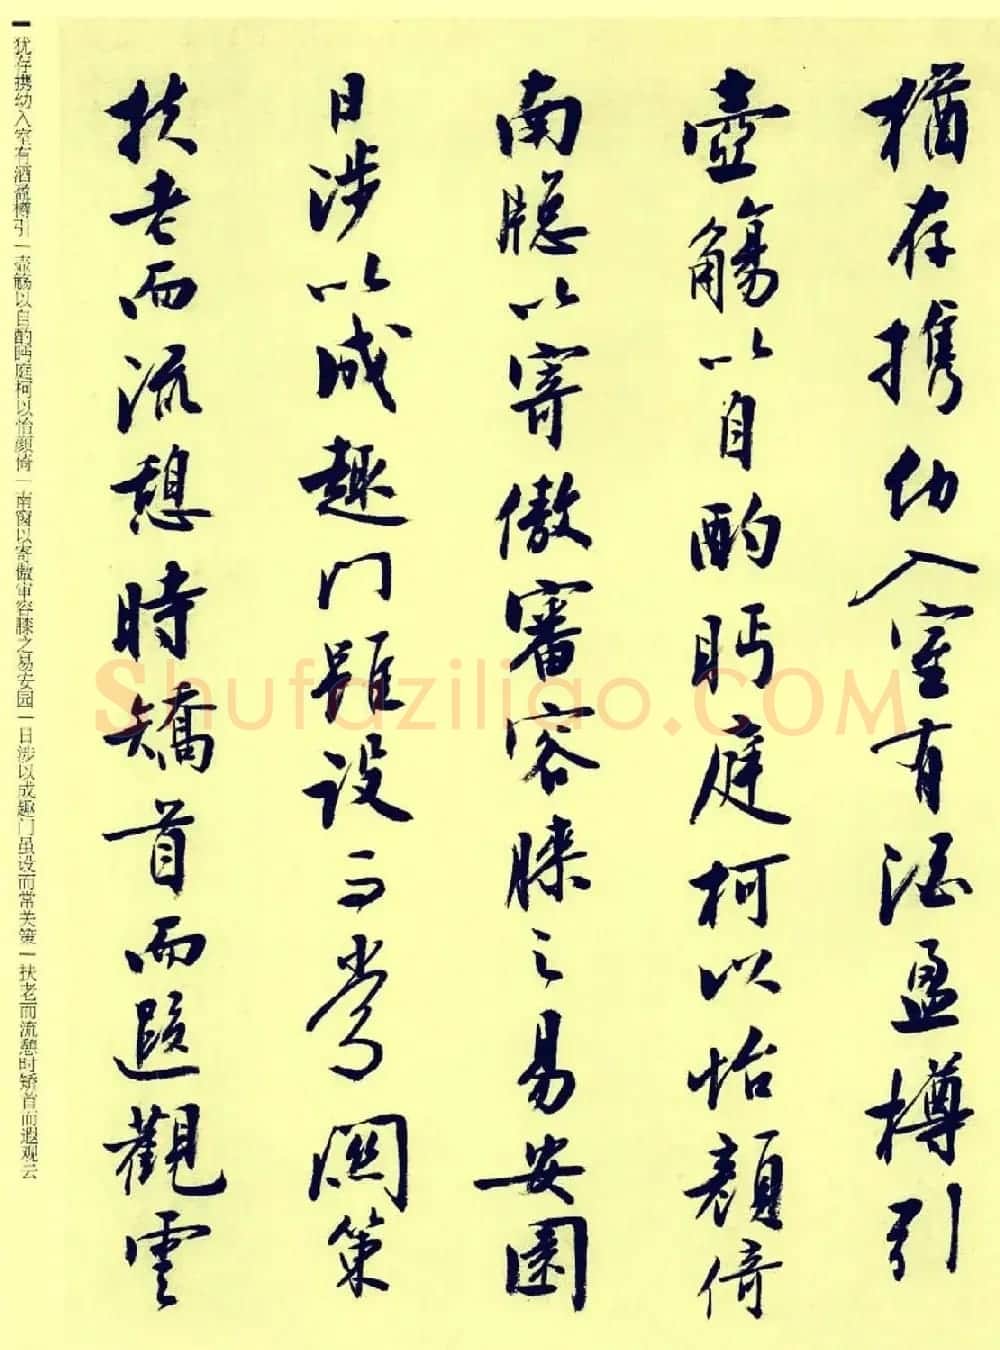 猶存携幼入室有酒盈樽引
壺觴以自酌眄庭柯以怡顔倚
南牕以寄傲審容膝之易安園
日涉以成趣門雖設而常關策
扶老而流憩時矯首而遐觀雲
犹存携幼入室有酒盈樽引|壶觞以自酌眄庭柯以怡颜倚|南窗以寄傲审容膝之易安园|日涉以成趣门虽设而常关策|扶老而流憩时矫首而遐观云
Shufaziliao.COM